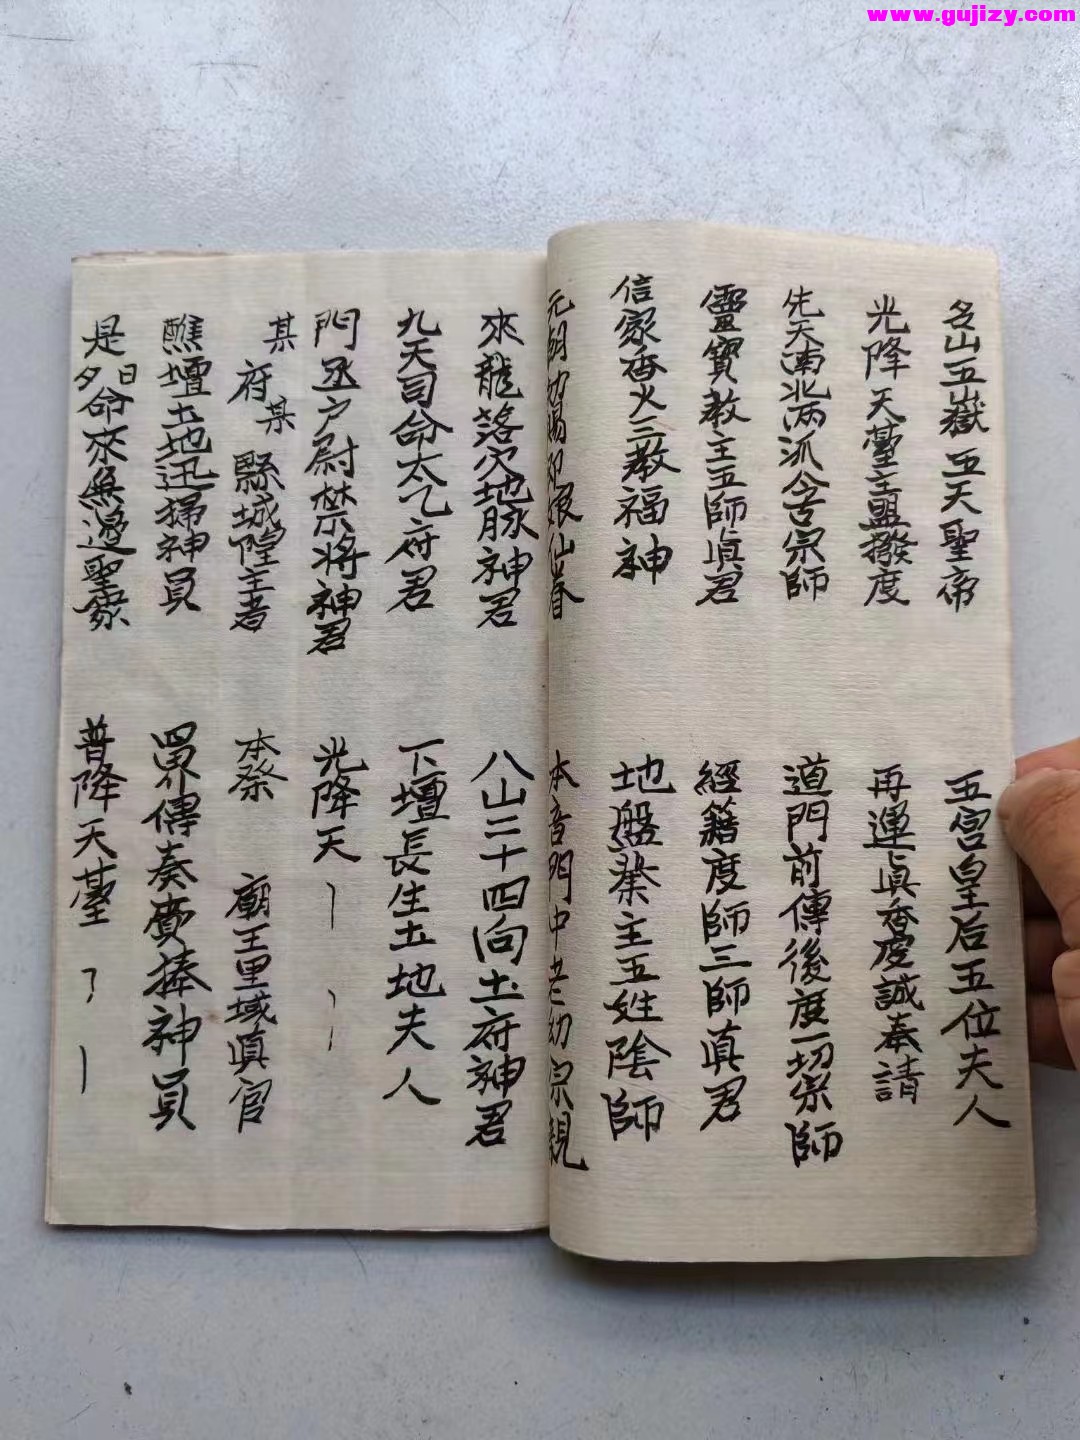 www.gujizy.com
名山五嶽五天聖帝 五宮皇后五位夫人
光降天臺主盟撥度 再運眞香虔誠奉請
先天南北兩派合宗師 道門前傳後度一切宗師
靈寶教主五師眞君 經籍度師三師真君
信家香火三教福神 地盤業主五姓陰師
元 仙眷 本音門中老幼宗親
來龍落穴地脉神君 八山二十四向土府神君
九天司命太乙府君 下壇長生土地夫人
門丞户尉禁将神君 光降天
某府某縣城隍主者 本祭 廟王里域眞官
醮壇土地迅掃神員 四界傳奏賫捧神員
是日夕命來無邊聖衆 普降天臺